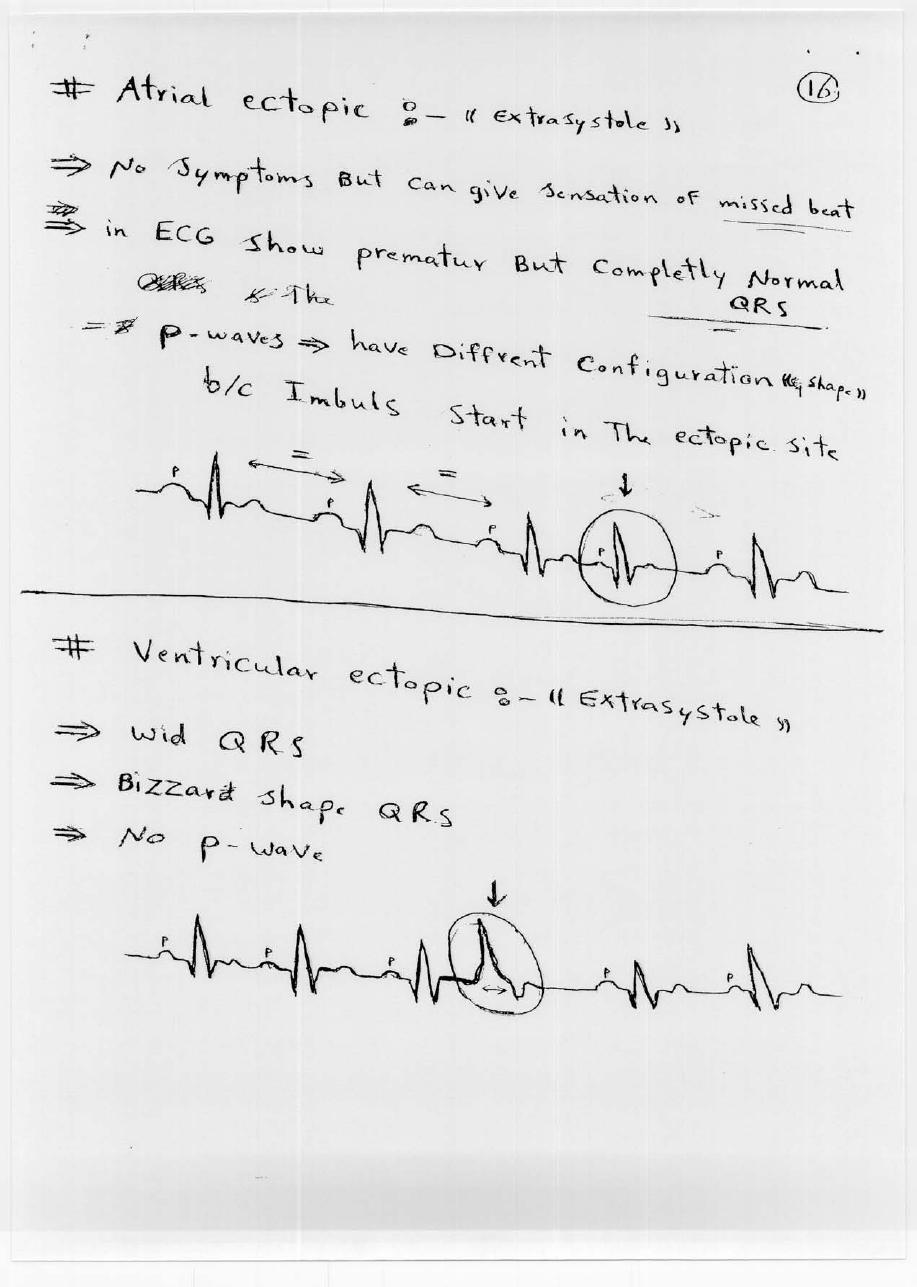 16
# Atrial ectopic :- « Extrasystole »
⇒ No Symptoms But can give Sensation of missed beat
⇒ in ECG show prematur But Completly Normal
QRS
The
⇒ P-waves ⇒ have Diffrent Configuration « shape »
b/c Imbuls Start in The ectopic site
= =
P P P P P
# Ventricular ectopic :- « Extrasystole »
⇒ Wid QRS
⇒ Bizzard shape QRS
⇒ No P-wave
P P P P P